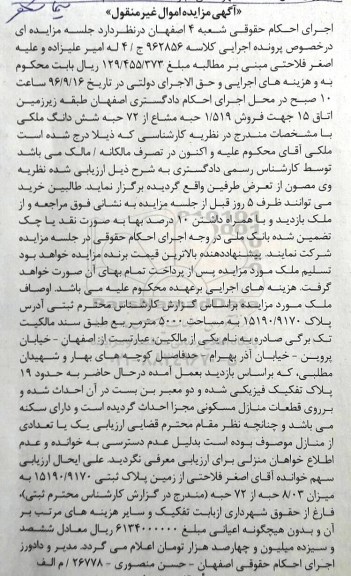 «آگهی مزایده اموال غیر منقول»
اجرای احکام حقوقی شعبه ۴ اصفهان درنظر دارد جلسه مزایده ای
درخصوص پرونده اجرایی کلاسه ۹۶۲۸۵۶ ج / ۴ له امیر علیزاده و علیه
اصغر فلاحتی مبنی بر مطالبه مبلغ ۱۲۹/۴۵۵/۳۷۳ ریال بابت محکوم
به و هزینه های اجرایی و حق الاجرای دولتی در تاریخ ۹۶/۹/۱۶ ساعت
۱۰ صبح در محل اجرای احکام دادگستری اصفهان طبقه زیرزمین
اتاق ۱۵ جهت فروش ۱/۵۱۹ حبه مشاع از ۷۲ حبه شش دانگ ملکی
با مشخصات مندرج در نظریه کارشناسی که ذیلا درج شده است
ملکی آقای محکوم علیه و اکنون در تصرف مالکانه / مالک می باشد
توسط کارشناس رسمی دادگستری به شرح ذیل ارزیابی شده نظریه
وی مصون از تعرض طرفین واقع گردیده برگزار نماید. طالبین خرید
می توانند ظرف ۵ روز قبل از جلسه مزایده به نشانی فوق مراجعه و از
ملک بازدید و با همراه داشتن ۱۰ درصد بها به صورت نقد یا چک
تضمین شده بانک ملی در وجه اجرای احکام حقوقی در جلسه مزایده
شرکت نمایند. پیشنهاددهنده بالاترین قیمت برنده مزایده خواهد بود
تسلیم ملک مورد مزایده پس از پرداخت تمام بهای آن صورت خواهد
گرفت. هزینه های اجرایی برعهده محکوم علیه می باشد. اوصاف
ملک مورد مزاییده براساس گزارش کارشناس محترم ثبتی آدرس
پلاک ۱۵۱۹۰/۹۱۷۰ به مساحت ۵۰۰۰ متر مربع طبق سند مالکیت
تک برگی صادره به نام یکی از مالکین، عبارتست از: اصفهان - خیابان
پروین - خیابان آذر بهرام - حدفاصل کوچه های بهار و شهیدان
مطلبی، که براساس بازدید بعمل آمده درحال حاضر به حدود ۱۹
پلاک تفکیک فیزیکی شده و دو معبر بن بست در آن احداث شده و
برروی قطعات منازل مسکونی مجزا احداث گردیده است و دارای سکنه
می باشد و چنانچه نظر مقام محترم قضایی ارزیابی یک یا تعدادی
از منازل موصوف بوده است بدلیل عدم دسترسی به خوانده و عدم
اطلاع خواهان منزلی برای ارزیابی معرفی نگردید. علی ایحال ارزیابی
سهم خوانده آقای اصغر فلاحتی از زمین پلاک ثبتی ۱۵۱۹۰/۹۱۷۰ به
میزان ۸/۰۳ حبه از ۷۲ حبه (مندرج در گزارش کارشناس محترم ثبتی)،
فارغ از حقوق شهرداری ازبابت تفکیک و سایر هزینه های مرتب بر
آن و بدون هیچگونه اعیانی مبلغ ۶۱۳۴۰۰۰۰۰۰ ریال معادل ششصد
و سیزده میلیون و چهارصد هزار تومان اعلام می گردد. مدیر و دادورز
اجرای احکام حقوقی اصفهان - حسن منصوری - ۲۶۷۷۸ / م الف